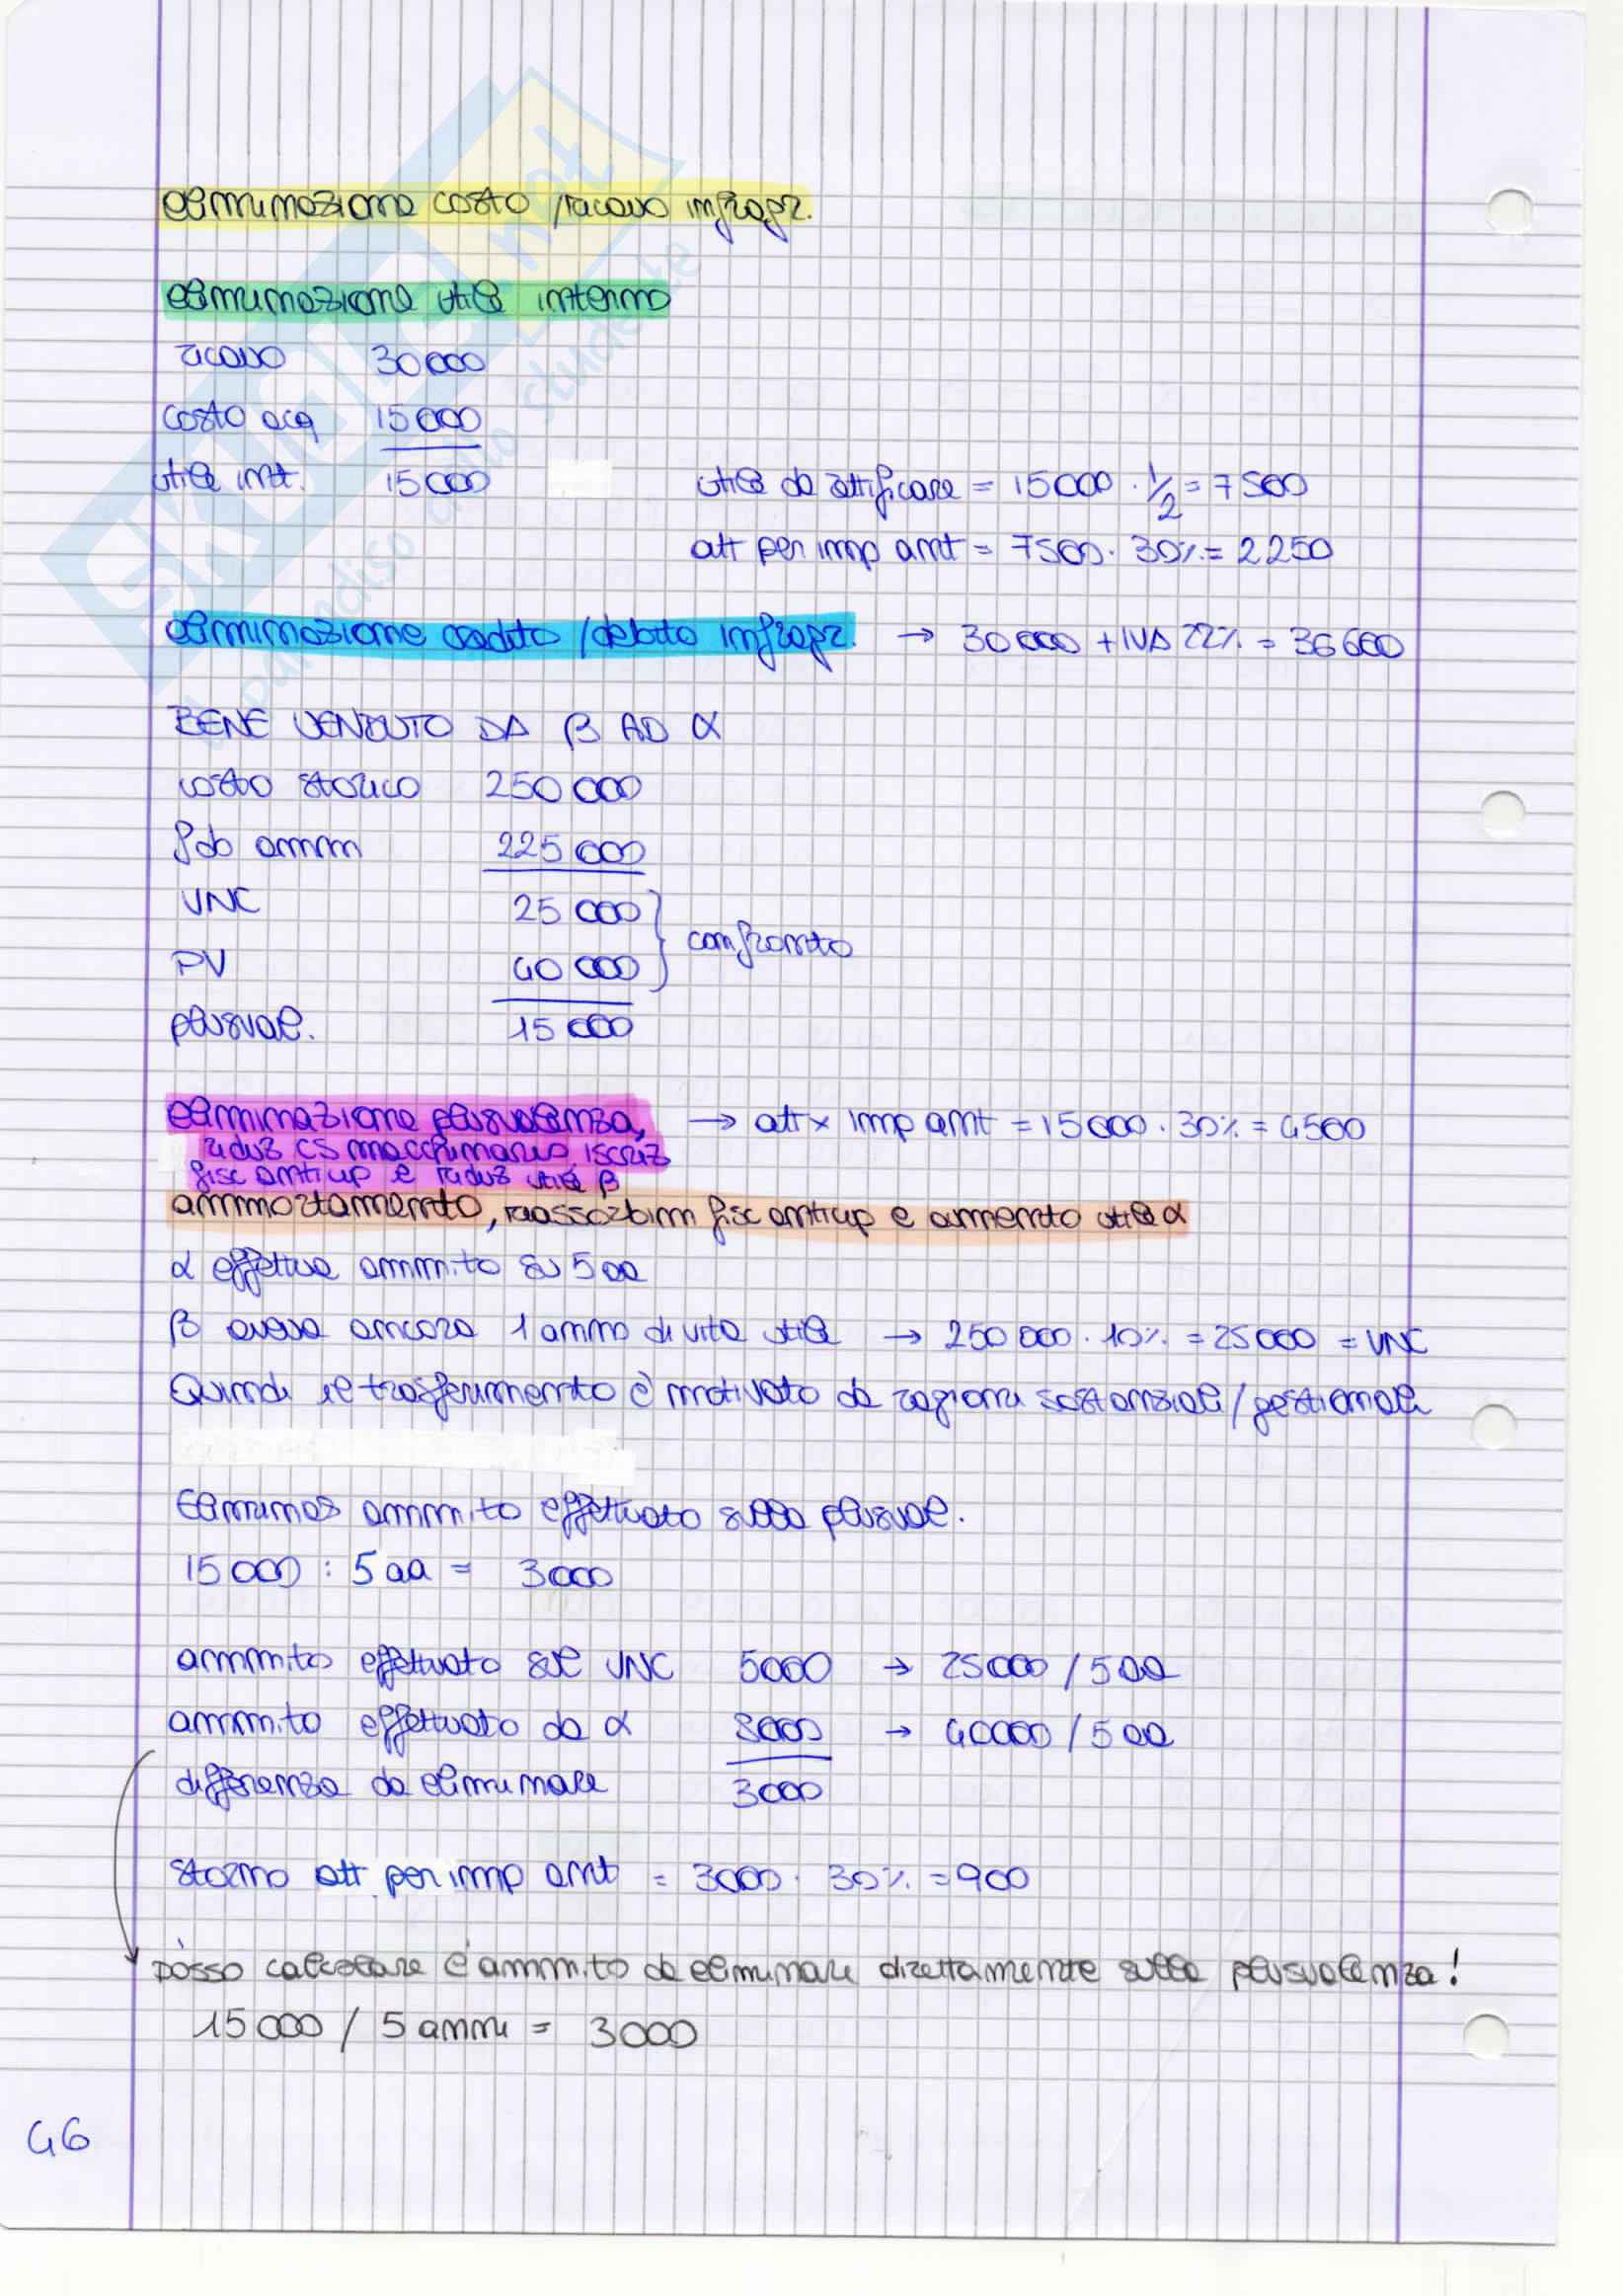 eliminazione costo /ricavo infragr.
eliminazione utile interno
ricavo 30000
costo acq 15000
utile int. 15000 utile da rettificare = 15000 · 1/2 = 7500
att per imp ant = 7500 · 30% = 2250
eliminazione credito /debito infragr. → 30000 + IVA 22% = 36600
BENE VENDUTO DA β AD α
costo storico 250000
fdo amm 225000
VNC 25000
PV 40000 confronto
plusval. 15000
eliminazione plusvalenza, → att x imp ant = 15000 · 30% = 4500
riduz CS macchinario, iscriz
fisc anticip e riduz utile β
ammortamento, riassorbim fisc anticip e aumento utile α
α effettua amm.to su 5 aa
β aveva ancora 1 anno di vita utile → 250000 · 10% = 25000 = VNC
Quindi il trasferimento è motivato da ragioni sostanziali/gestionali
Eliminaz amm.to effettuato sulla plusval.
15000 : 5 aa = 3000
amm.to effettuato sul VNC 5000 → 25000 / 5 aa
amm.to effettuato da α 8000 → 40000 / 5 aa
differenza da eliminare 3000
storno att per imp ant = 3000 · 30% = 900
posso calcolare l'amm.to da eliminare direttamente sulla plusvalenza!
15000 / 5 anni = 3000
46